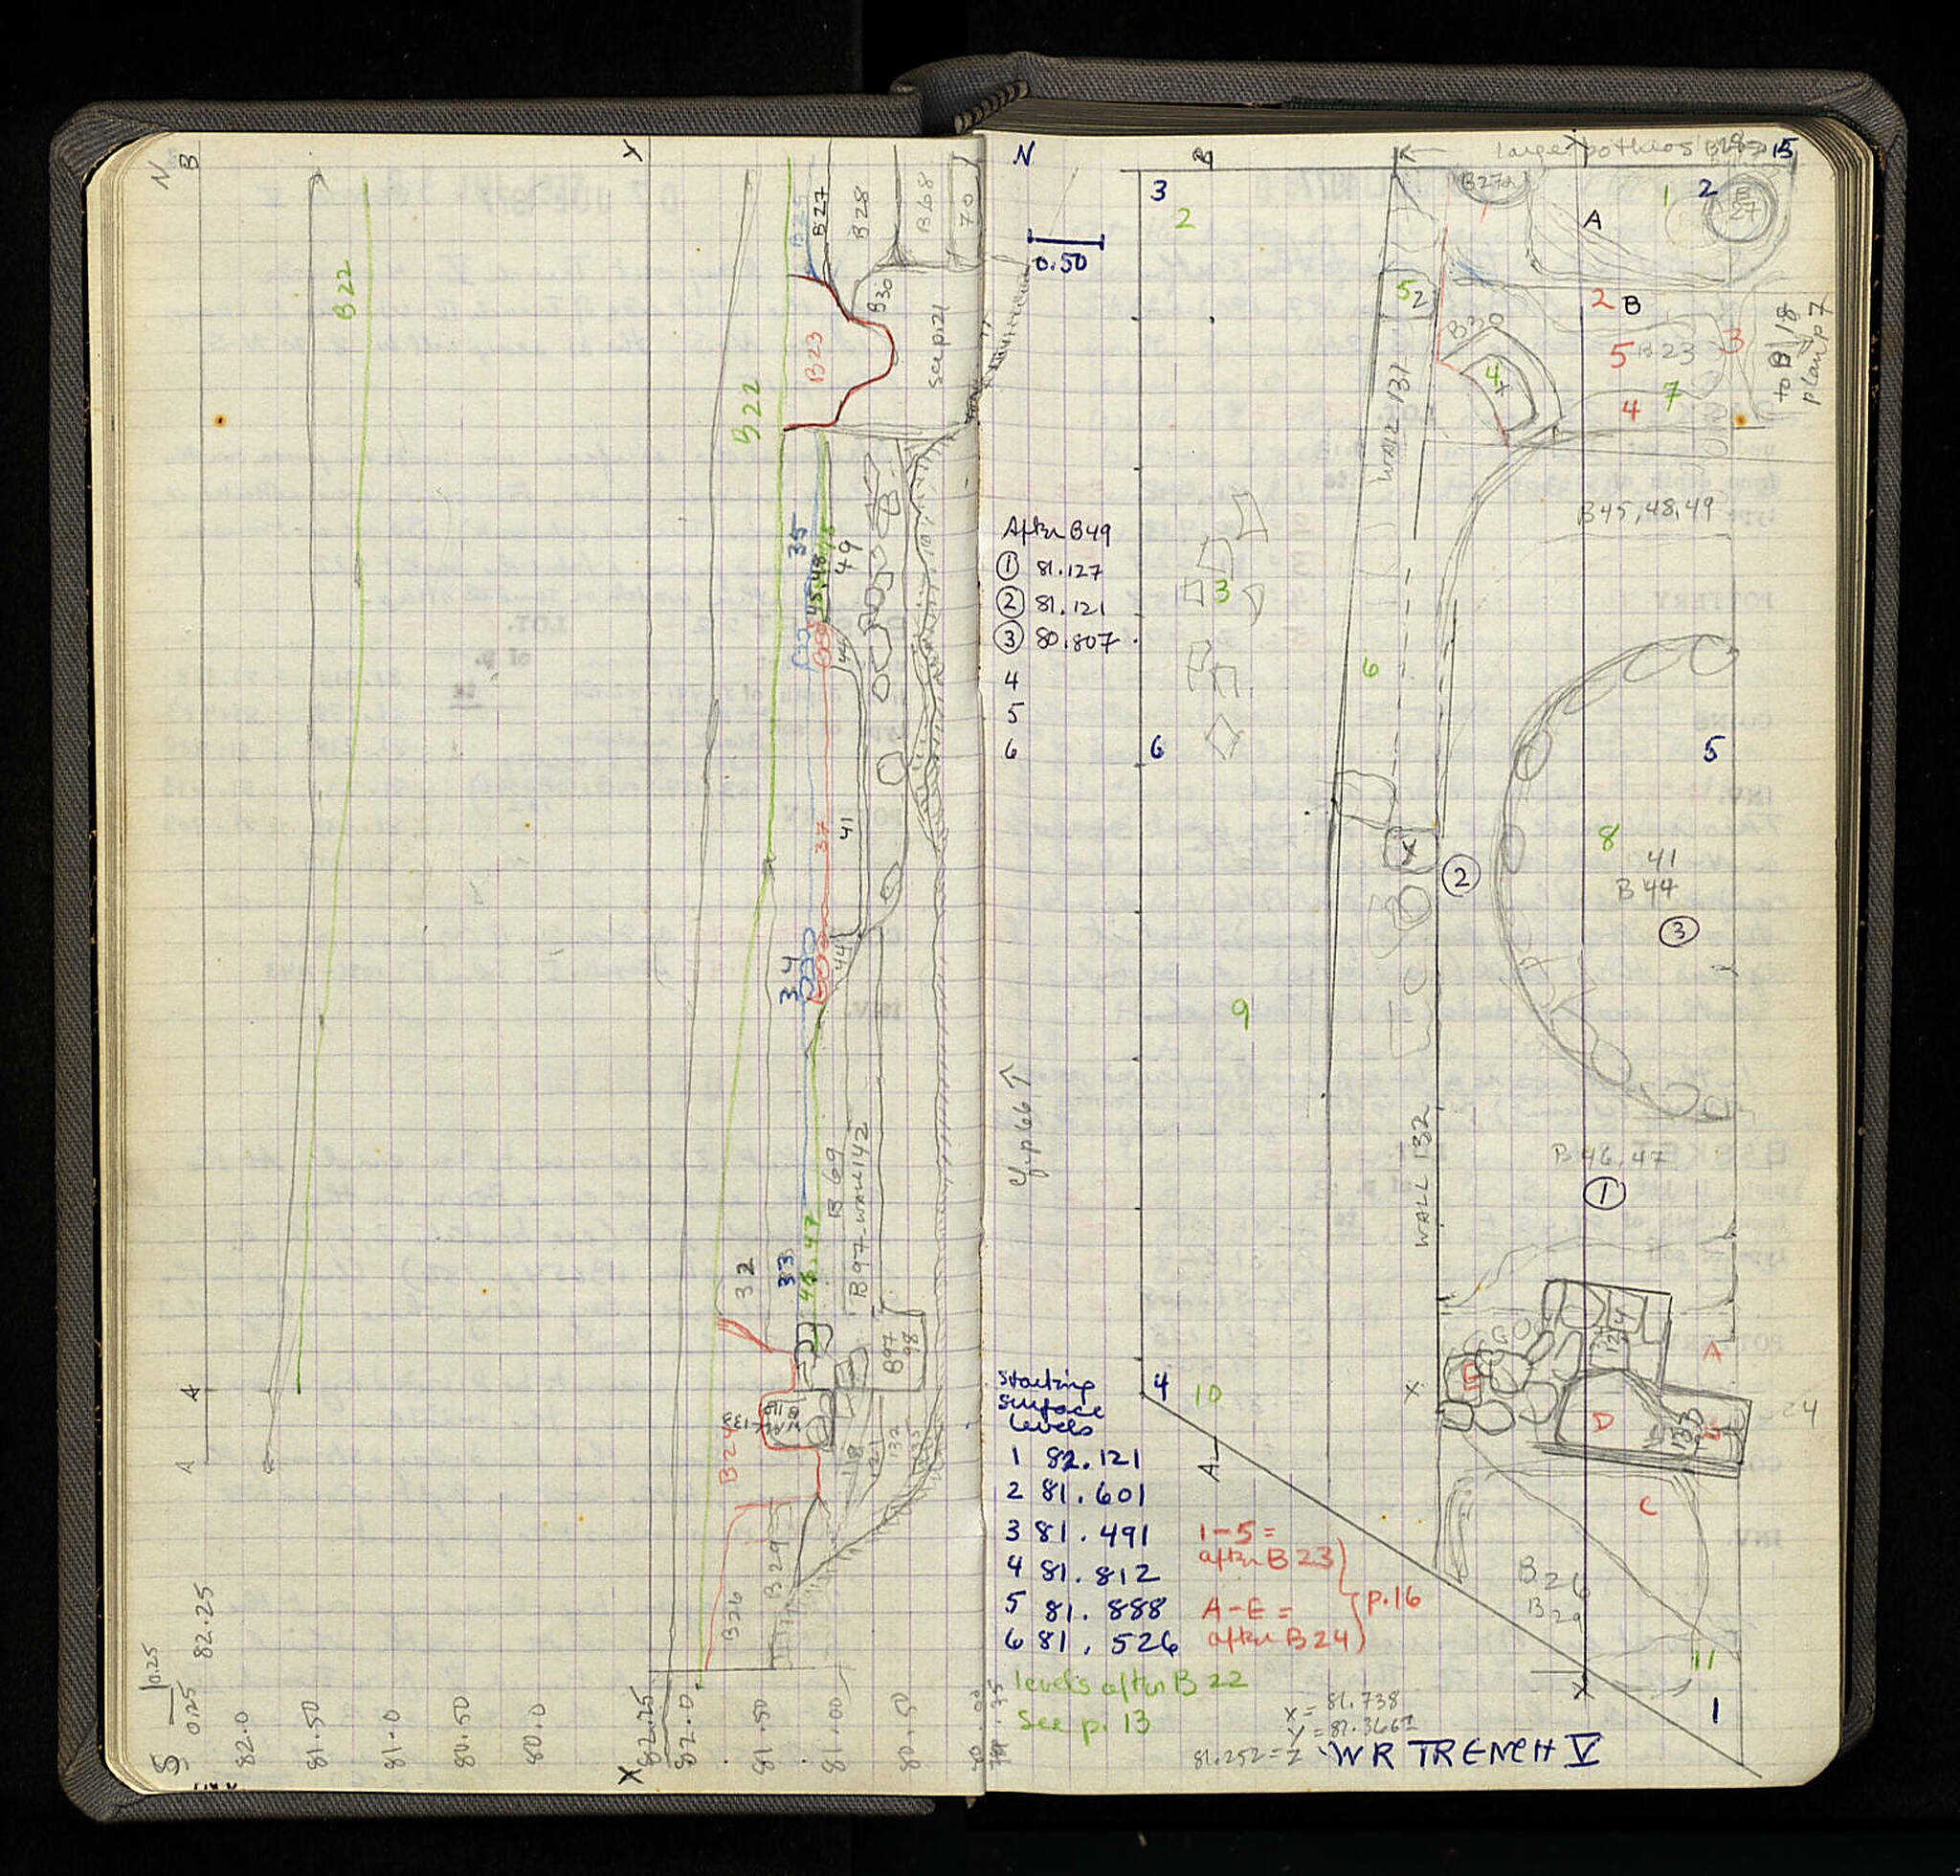 N
B
Y
B22
B22
B27
B28
B68
70
B30
B23
see p 21
35
45,48
49
B50
44
41
37
34
44
B 69
B97-WALL 142
33
46,47
32
B97
98
B24
133
118
121
132
135
B26
B29
A
A
0.25
82.25
S
0.25
82.0
81.50
81.0
80.50
80.0
X
82.25
82.0
81.50
81.00
80.50
N
B
large pothios
15
3
2
B27a
1
2
A
E
27
0.50
5
2
2 B
B30
5 B23
3
4
4
7
to B 18
plan p 7
WALL 131
After B49
① 81.127
② 81.121
③ 80.807
4
5
6
3
B45,48,49
6
6
5
8
41
B 44
X
②
③
9
cf. p 66 ↑
WALL 132
B 46, 47
①
A
E
D
B
133
24
X
4
10
Starting
surface
levels
1 82.121
2 81.601
3 81.491
4 81.812
5 81.888
6 81.526
A
C
1-5 =
after B23
A-E =
after B24
p.16
B26
B29
11
levels after B 22
See p. 13
X = 81.738
81.252 = Z
X
1
WR TRENCH V